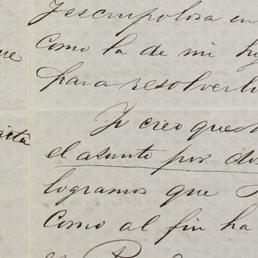 y escrupolosa en
como la de mi
para resolverl
Yo creo que
el asunto por do
logramos que
Como al fin ha